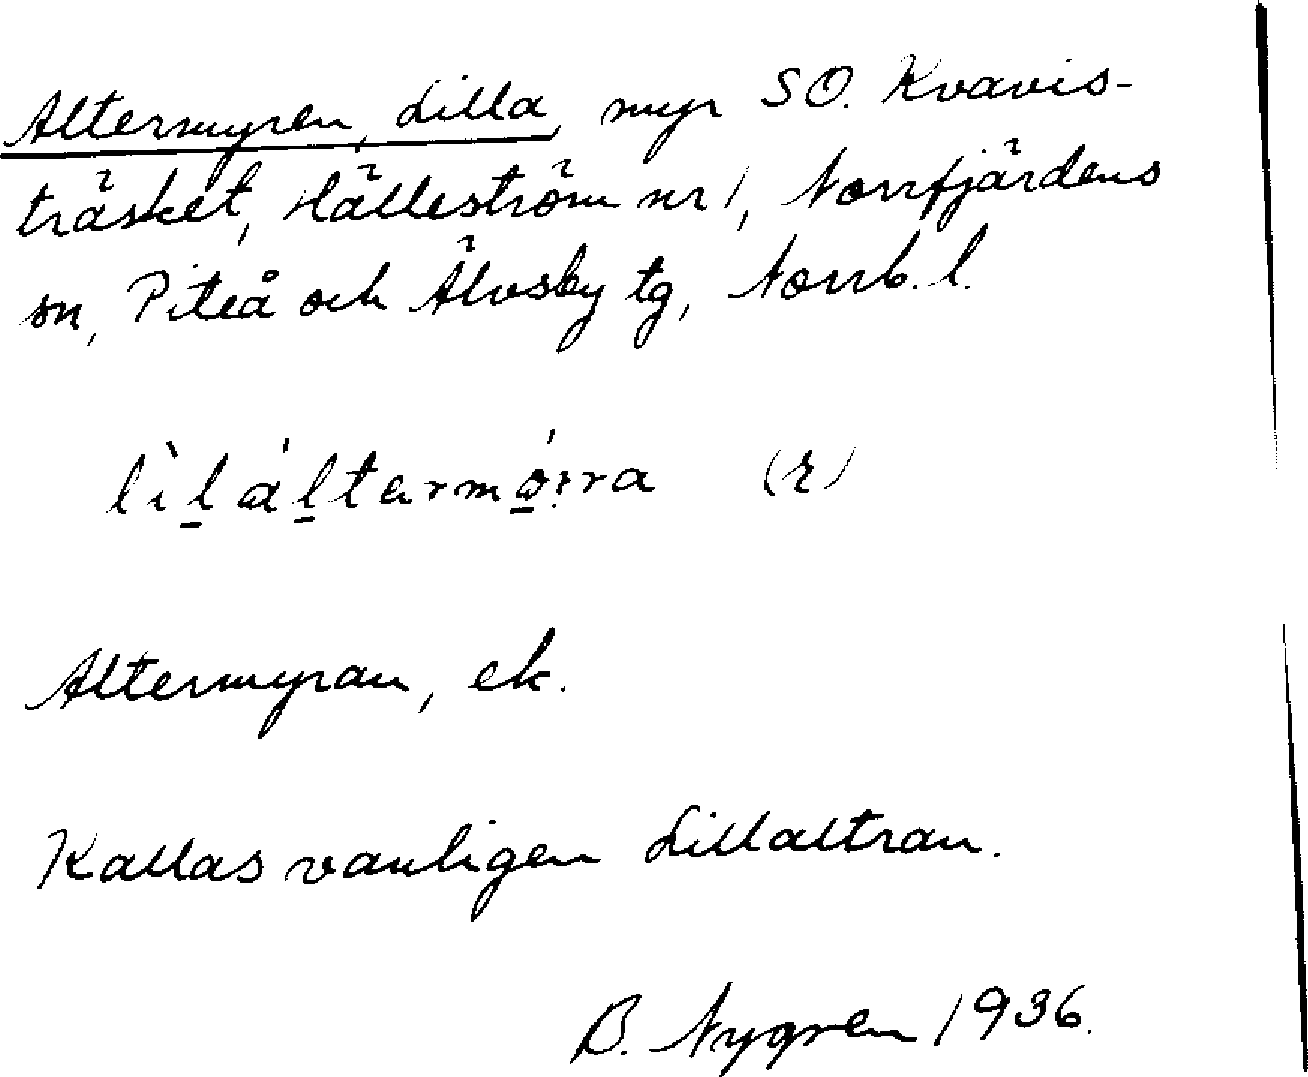 Altermyren, Lilla, myr SO. Kvavis-
träsket, Hälleström nr 1, Norrfjärdens
sn, Piteå och Älvsby tg, Norrb. l.
lìl̲ ál̲tarmǿ̲rra (r)
Altermyran, ek.
Kallas vanligen Lillaltran.
B. Nygren 1936.